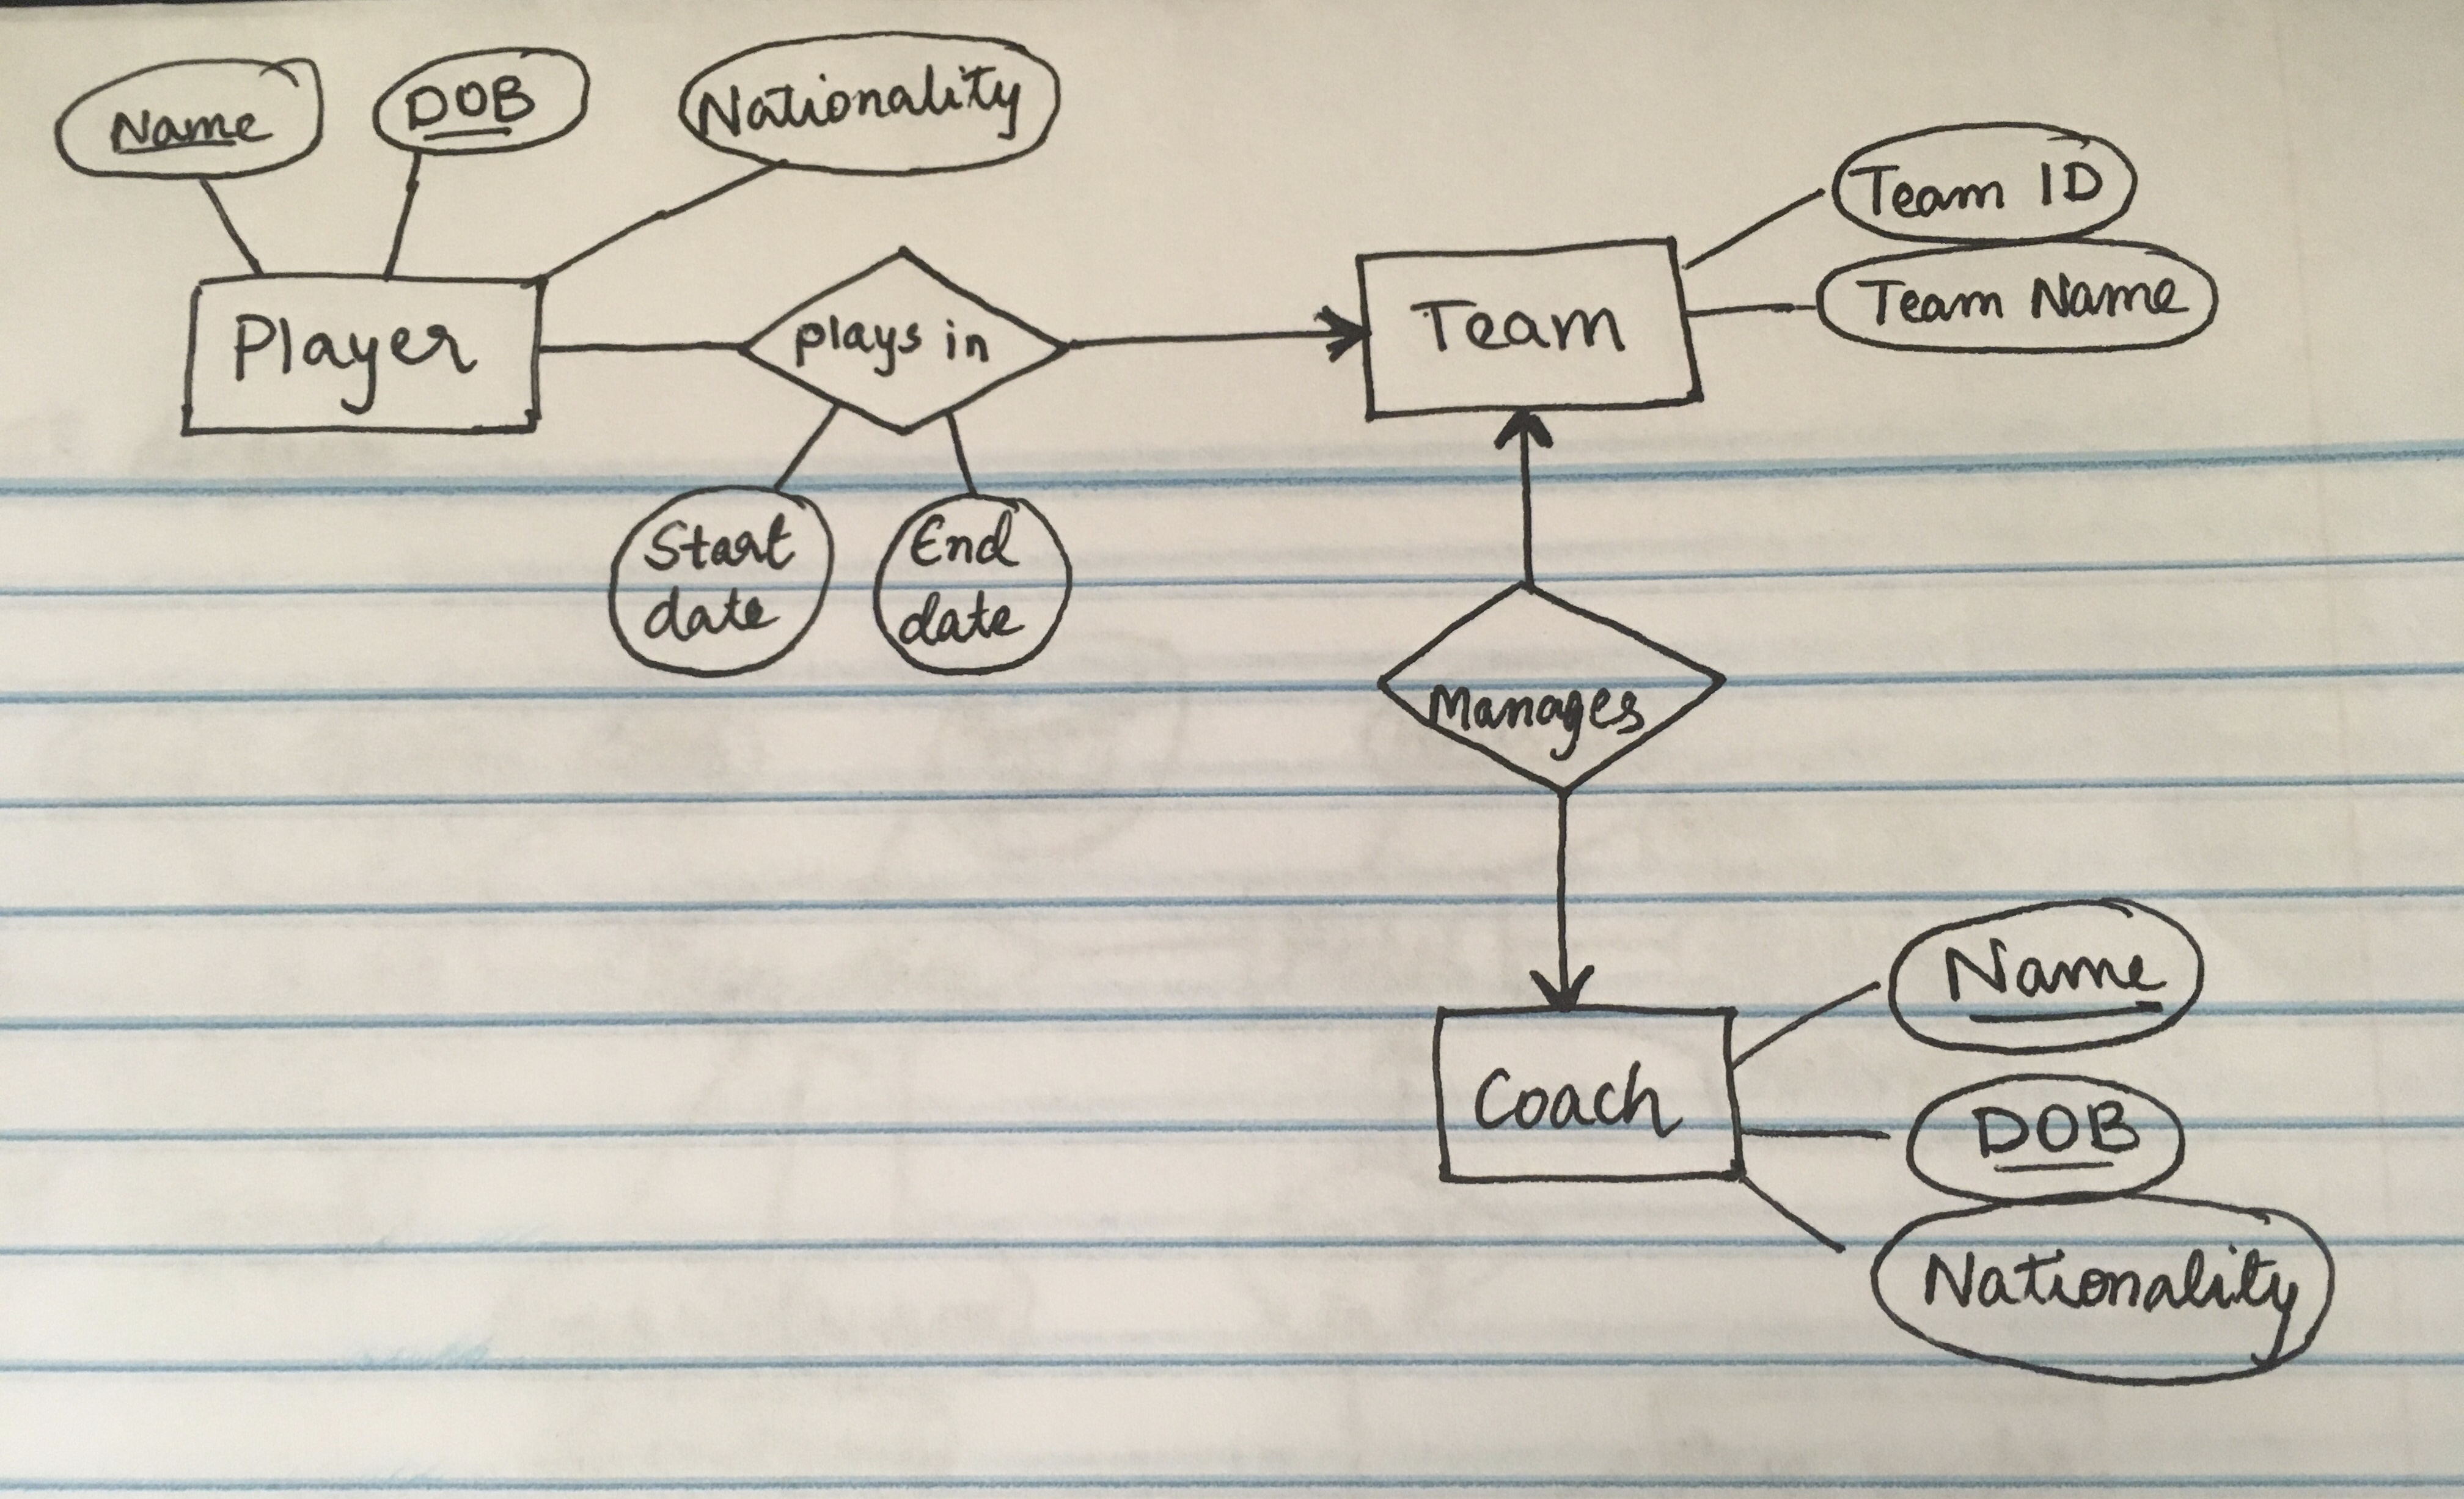 Name
DOB
Nationality
Player
plays in
Start
date
End
date
Team
Team ID
Team Name
Manages
Coach
Name
DOB
Nationality